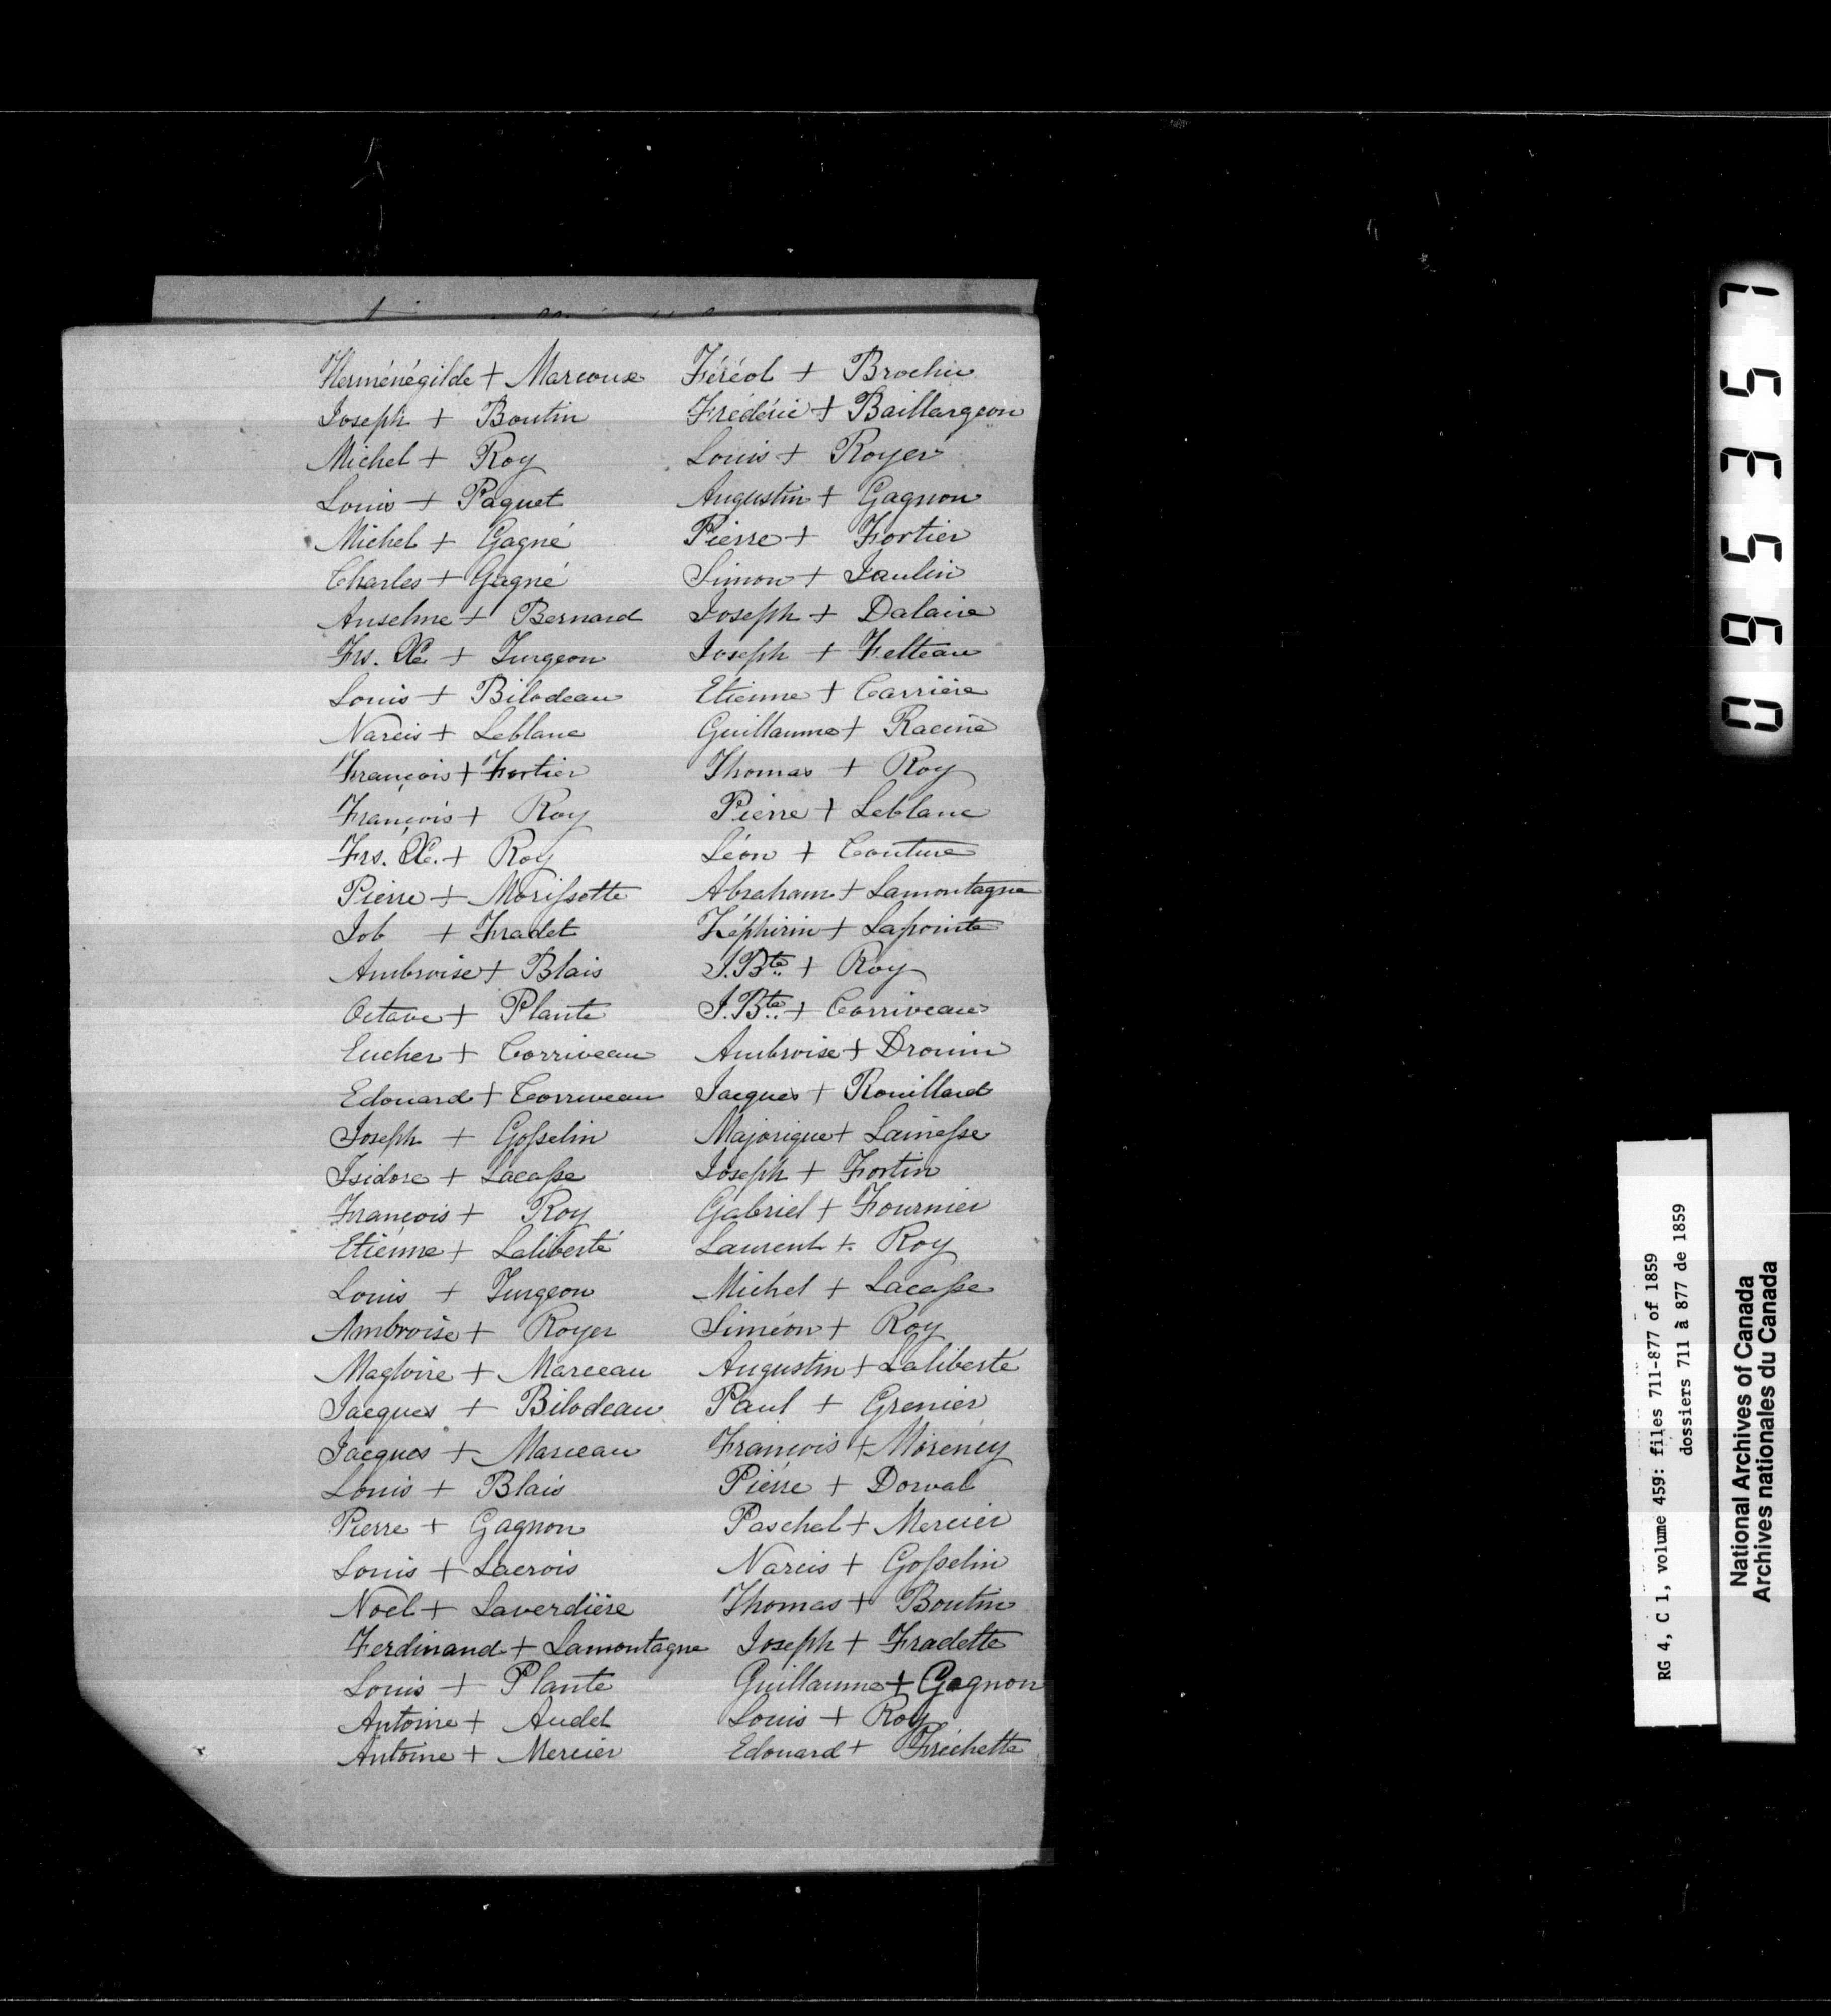 Herménégilde + Marcoux Féréol + Brochu
Joseph + Boutin Frédéric + Baillargeon
Michel + Roy Louis + Royer
Louis + Paquet Augustin + Gagnon
Michel + Gagné Pierre + Fortier
Charles + Gagné Simon + Jaulin
Anselme + Bernard Joseph + Dalaire
Frs. X. + Turgeon Joseph + Felteau
Louis + Bilodeau Etienne + Carrière
Narcis + Leblanc Guillaume + Racine
François + Fortier Thomas + Roy
François + Roy Pierre + Leblanc
Frs. X. + Roy Léon + Couture
Pierre + Morissette Abraham + Lamontagne
Job + Fradet Zéphirin + Lapointe
Ambroise + Blais J. Bte. + Roy
Octave + Plante J. Bte. + Corriveau
Eucher + Corriveau Ambroise + Drouin
Edouard + Corriveau Jacques + Rouillard
Joseph + Gosselin Majorique + Lainesse
Isidore + Lacasse Joseph + Fortin
François + Roy Gabriel + Fournier
Etienne + Laliberté Laurent + Roy
Louis + Turgeon Michel + Lacasse
Ambroise + Royer Siméon + Roy
Magloire + Marceau Augustin + Laliberté
Jacques + Bilodeau Paul + Grenier
Jacques + Marceau François + Morency
Louis + Blais Pierre + Dorval
Pierre + Gagnon Paschal + Mercier
Louis + Lacrois Narcis + Gosselin
Noël + Laverdière Thomas + Boutin
Ferdinand + Lamontagne Joseph + Fradette
Louis + Plante Guillaume + Gagnon
Antoine + Audet Louis + Roy
Antoine + Mercier Edouard + Fréchette
095357
RG 4, C 1, volume 459: files 711-877 of 1859
dossiers 711 à 877 de 1859
National Archives of Canada
Archives nationales du Canada